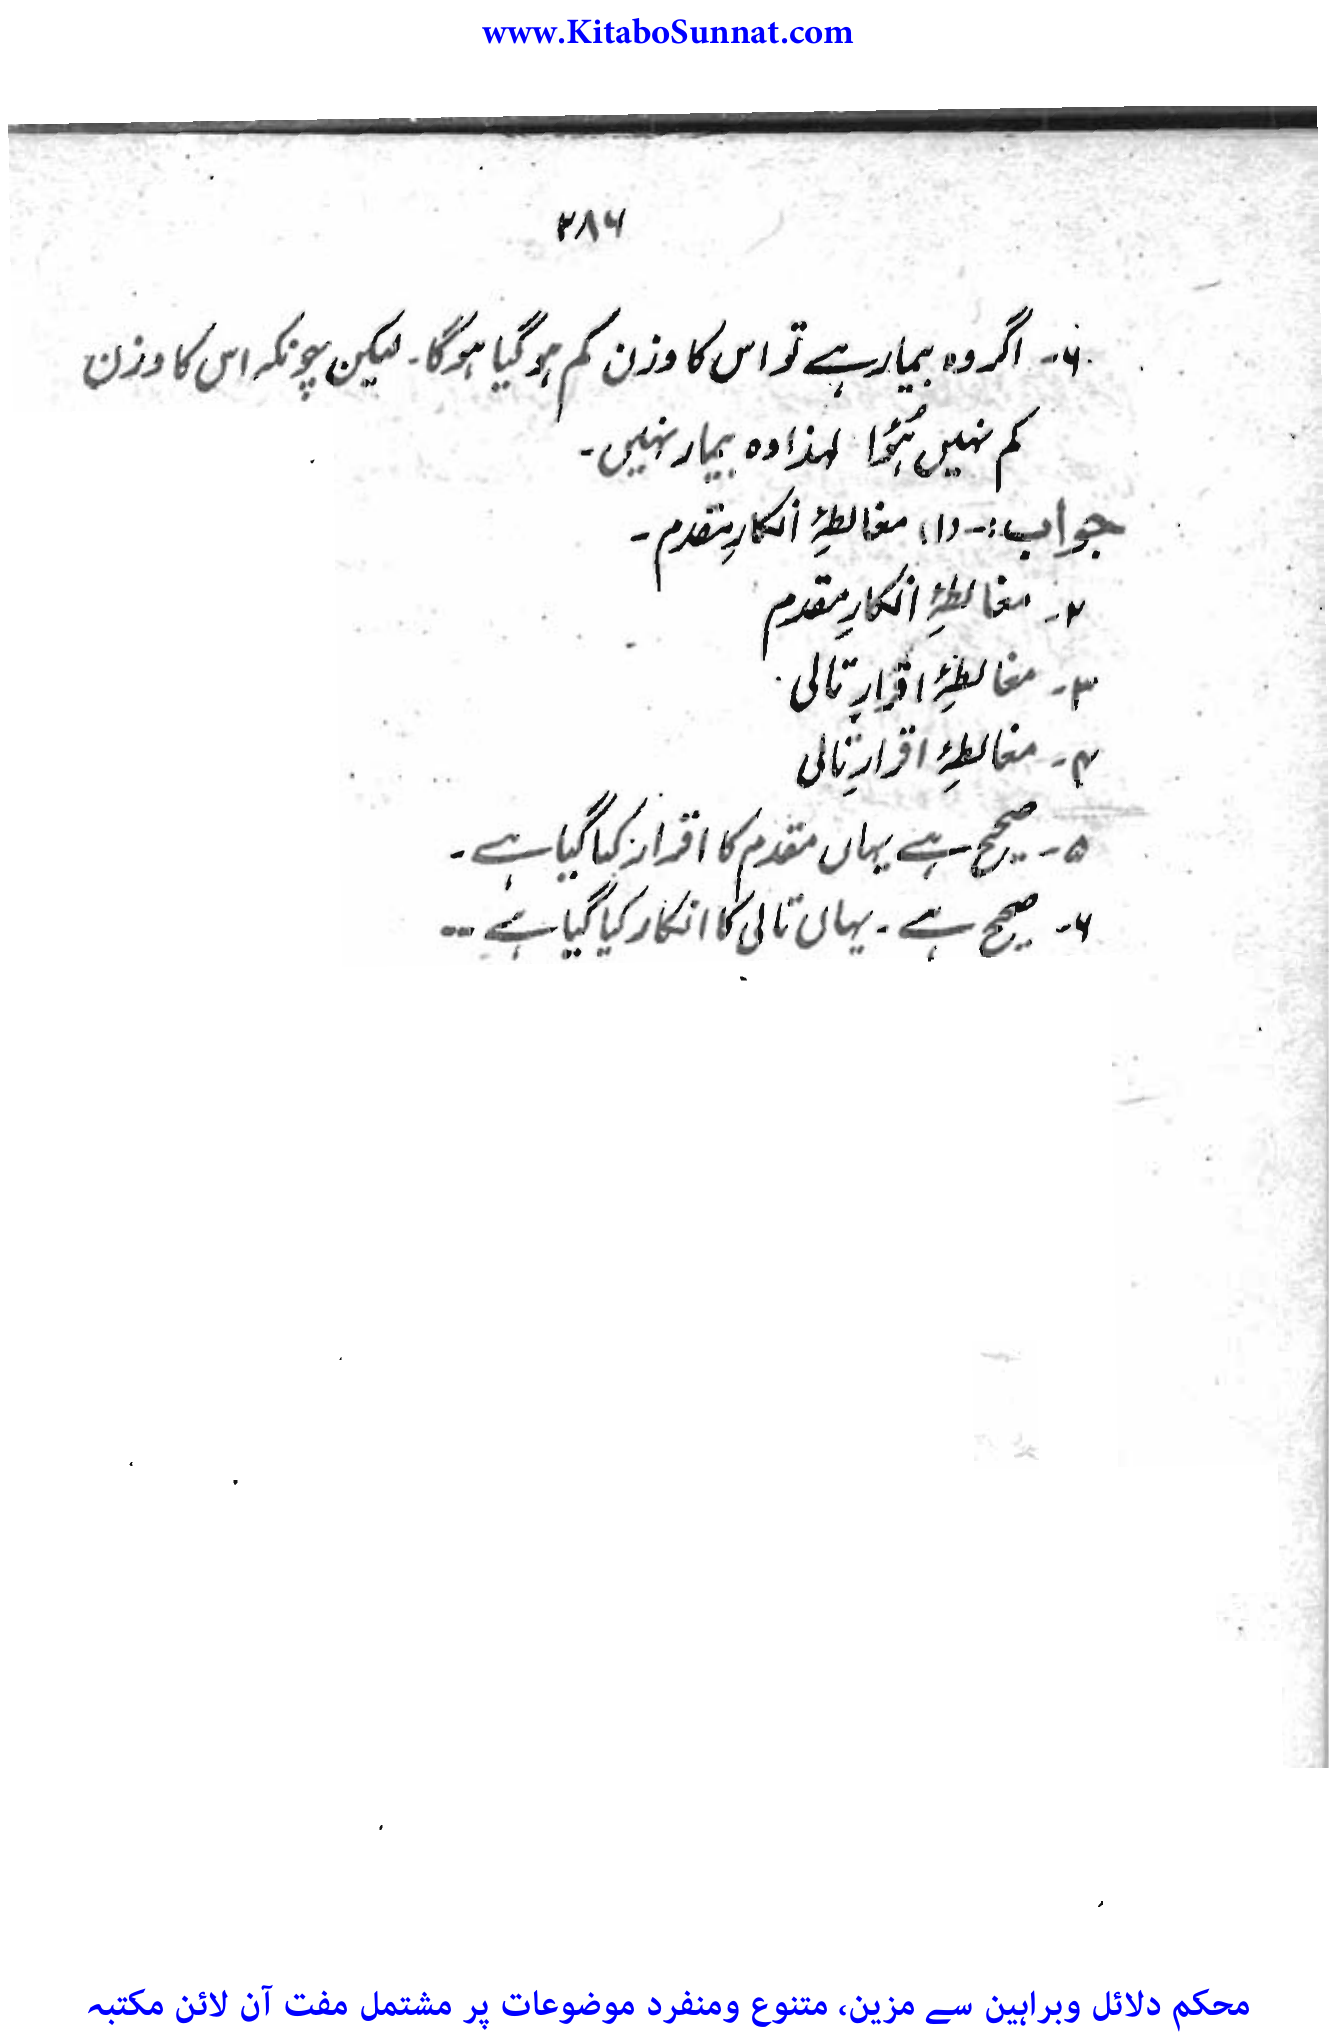 www.KitaboSunnat.com
۲۸۶
۶۔ اگر وہ بیمار ہے تو اس کا وزن کم ہو گیا ہو گا۔ لیکن چونکہ اس کا وزن
کم نہیں ہُؤا لہذا وہ بیمار نہیں۔
جواب:۔ (۱) مغالطۂ انکارِ مقدم۔
۲۔ مغالطۂ انکارِ مقدم
۳۔ مغالطۂ اقرارِ تالی
۴۔ مغالطۂ اقرارِ تالی
۵۔ صحیح ہے یہاں مقدم کا اقرار کیا گیا ہے۔
۶۔ صحیح ہے۔ یہاں تالی کا انکار کیا گیا ہے۔۔
محکم دلائل وبراہین سے مزین، متنوع ومنفرد موضوعات پر مشتمل مفت آن لائن مکتبہ